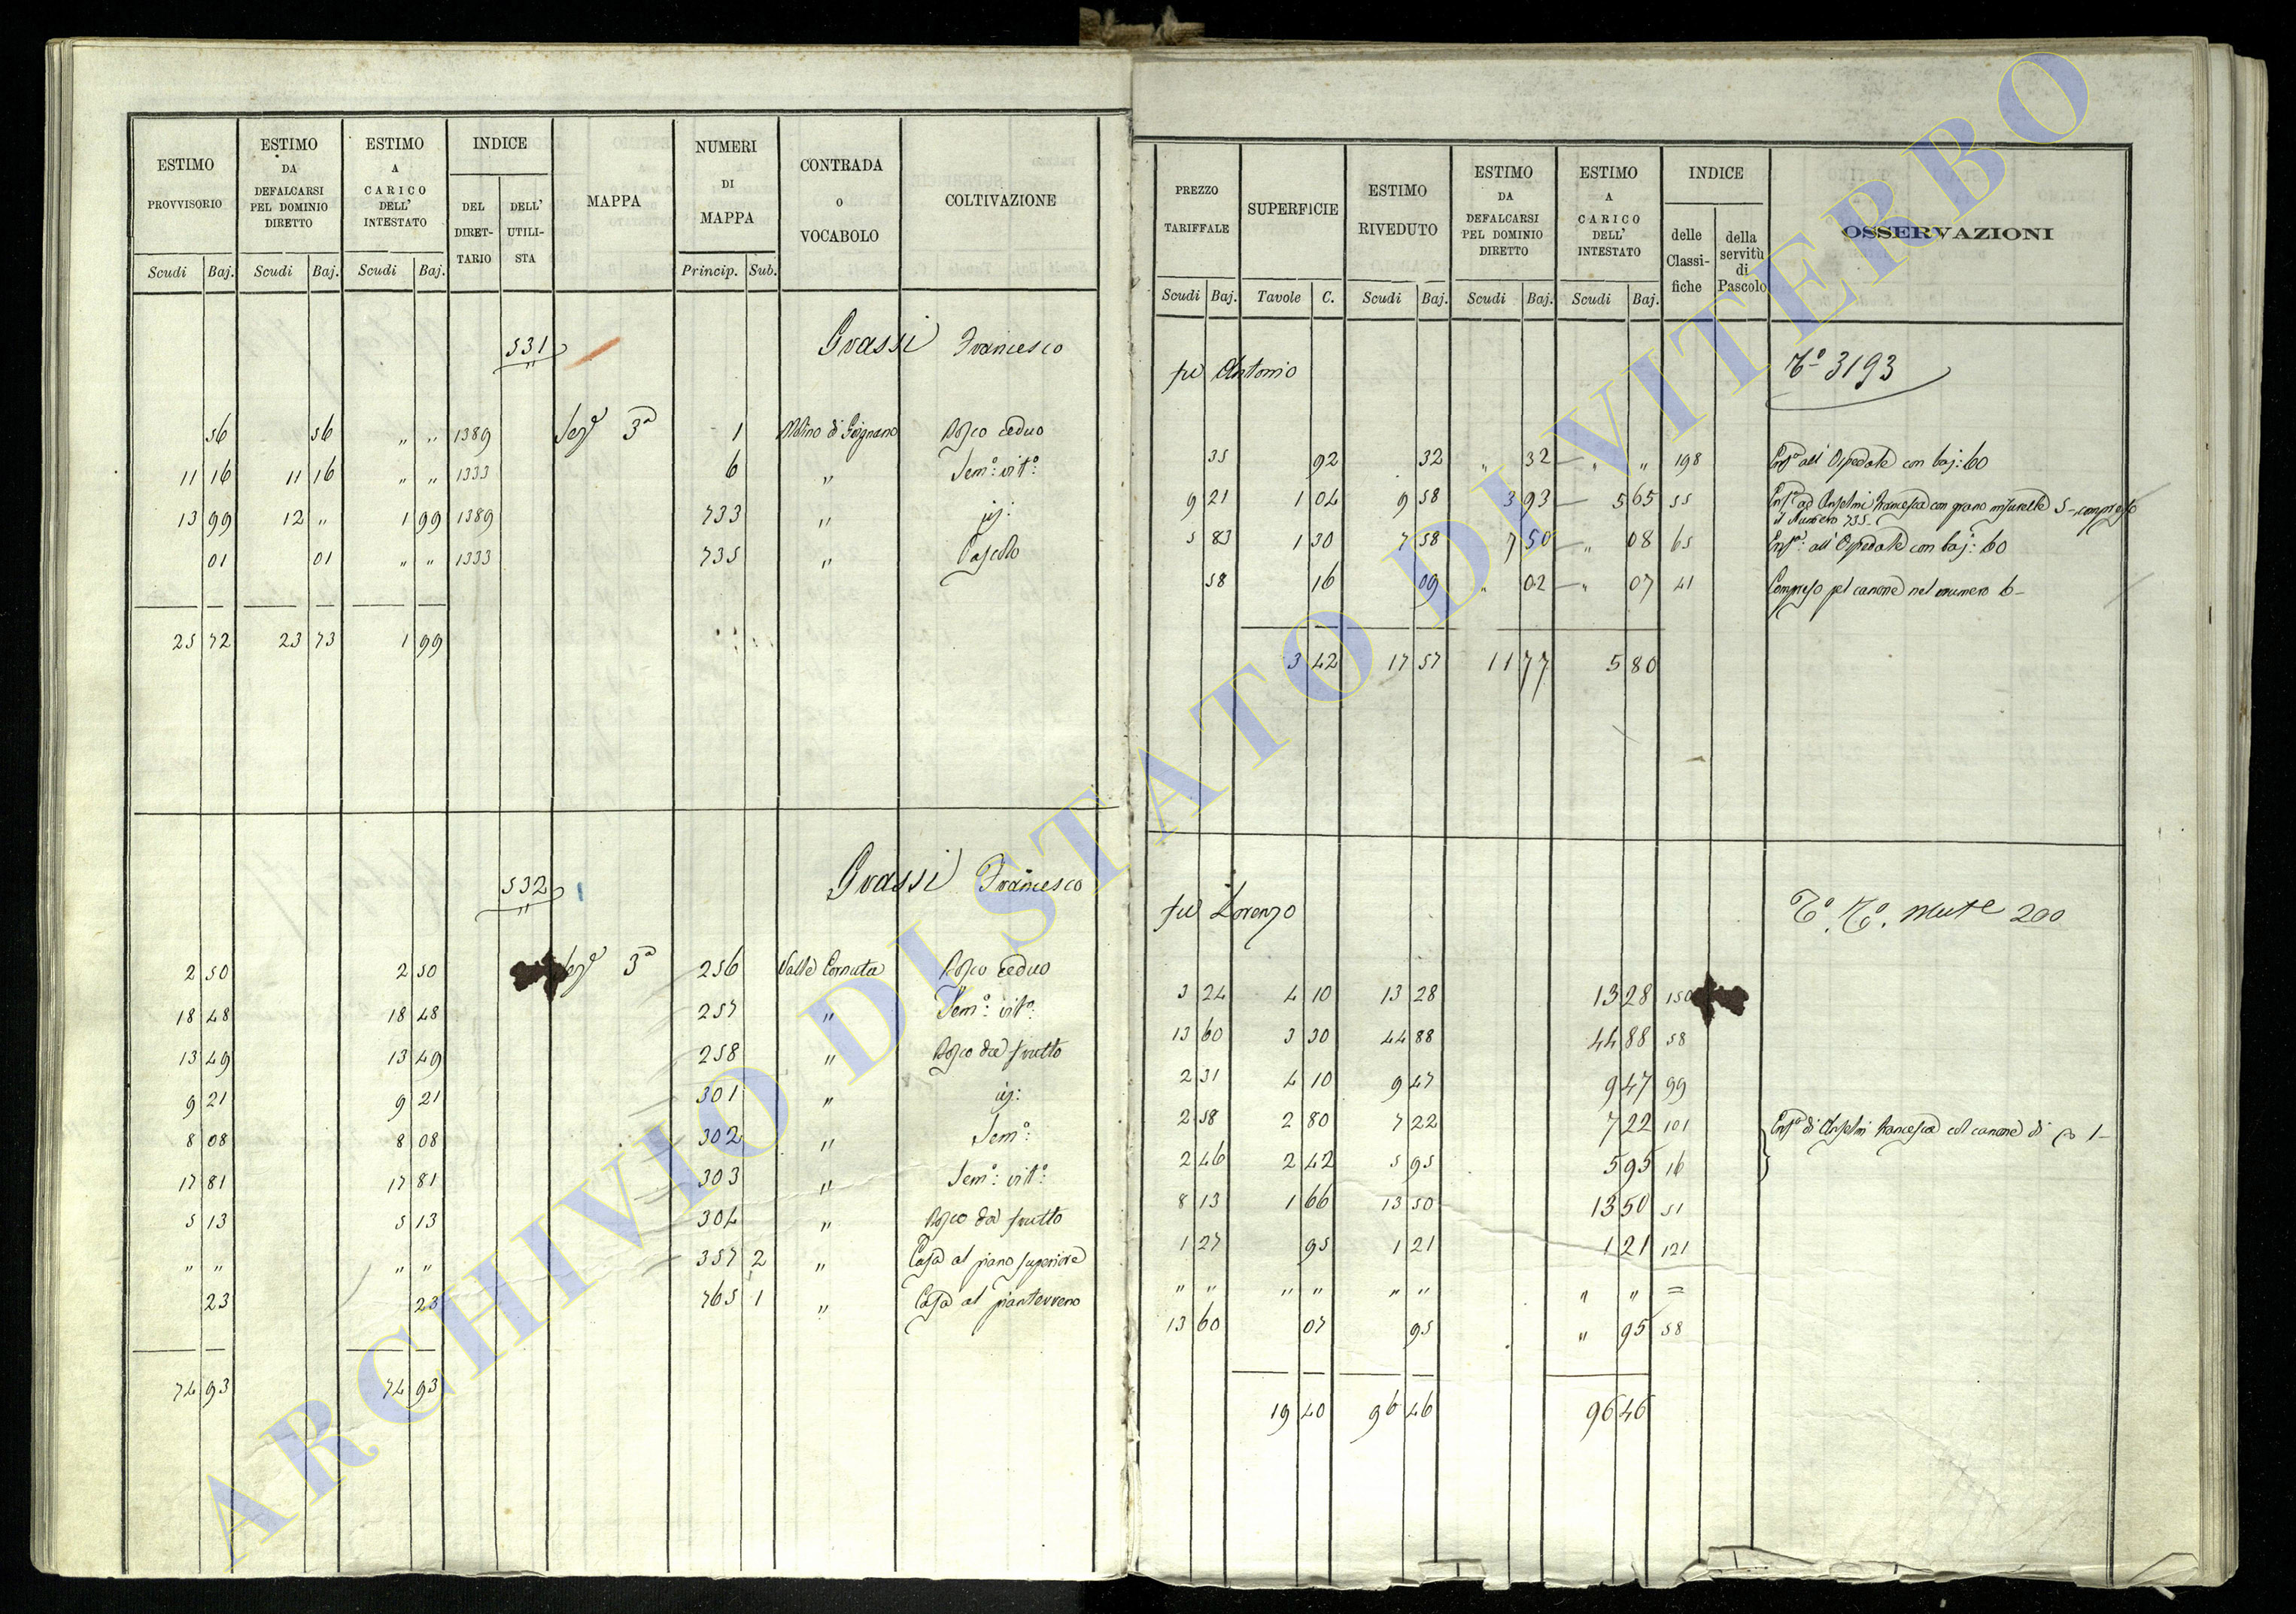 ARCHIVIO DI STATO DI VITERBO
ESTIMO PROVVISORIO | ESTIMO DA DEFALCARSI PEL DOMINIO DIRETTO | ESTIMO A CARICO DELL' INTESTATO | INDICE DEL DIRETTARIO | DELL' UTILISTA | MAPPA | NUMERI DI MAPPA | CONTRADA o VOCABOLO | COLTIVAZIONE
Scudi Baj. | Scudi Baj. | Scudi Baj. | Princip. Sub.
531 Grassi Francesco
56 | 56 | " " | 1389 | Seze 3a | 1 | Molino di Grignano | Bosco ceduo
11 16 | 11 16 | " " | 1333 | 6 | " | Semo: vito:
13 99 | 12 " | 1 99 | 1389 | 733 | " | id:
01 | 01 | " " | 1333 | 735 | " | Pascolo
25 72 | 23 73 | 1 99
532 Grassi Francesco
2 50 | 2 50 | Sezе 3a | 256 | Valle Cornuta | Bosco ceduo
18 48 | 18 48 | 257 | " | Semo: vito:
13 49 | 13 49 | 258 | " | Bosco da frutto
9 21 | 9 21 | 301 | " | id:
8 08 | 8 08 | 302 | " | Semo:
17 81 | 17 81 | 303 | " | Semo: vito:
5 13 | 5 13 | 304 | " | Bosco da frutto
" " | " " | 357 2 | " | Casa al piano superiore
23 | 23 | 765 1 | " | Casa al pianterreno
74 93 | 74 93
PREZZO TARIFFALE | SUPERFICIE | ESTIMO RIVEDUTO | ESTIMO DA DEFALCARSI PEL DOMINIO DIRETTO | ESTIMO A CARICO DELL' INTESTATO | INDICE delle Classifiche | della servitù di Pascolo | OSSERVAZIONI
Scudi Baj. | Tavole C. | Scudi Baj. | Scudi Baj. | Scudi Baj.
fu Antonio | 3193
35 | 92 | 32 | " 32 | " " | 198 | Enfa all' Ospedale con baj: 60
9 21 | 1 04 | 9 58 | 3 93 | 5 65 | 55 | Enfa ad Anselmi Francesca con grano misurelle 5 - compreso
il Numero 735 -
5 83 | 1 30 | 7 58 | 7 50 | " 08 | 65 | Enfa: all' Ospedale con baj: 60
58 | 16 | 09 | " 02 | " 07 | 41 | Compreso pel canone nel numero 6 -
3 42 | 17 57 | 11 77 | 5 80
fu Lorenzo | 200
3 24 | 4 10 | 13 28 | 13 28 | 150
13 60 | 3 30 | 44 88 | 44 88 | 58
2 31 | 4 10 | 9 47 | 9 47 | 99
2 58 | 2 80 | 7 22 | 7 22 | 101 | Enfa di Anselmi Francesca col canone di 1 -
2 46 | 2 42 | 5 95 | 5 95 | 16
8 13 | 1 66 | 13 50 | 13 50 | 51
1 27 | 95 | 1 21 | 1 21 | 121
" " | " " | " " | " " | =
13 60 | 07 | 95 | " 95 | 58
19 40 | 96 46 | 96 46